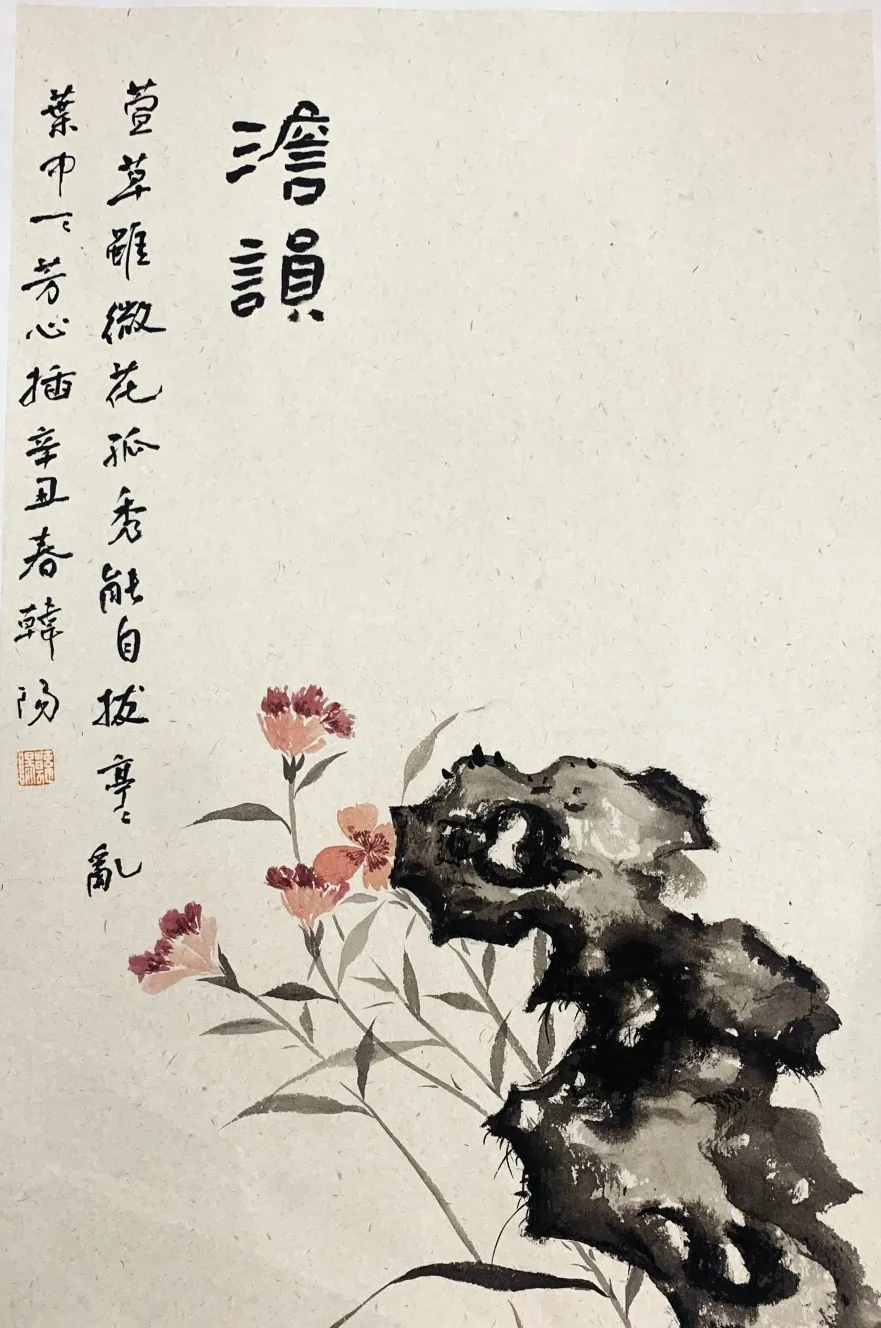 澹韻
萱草雖微花孤秀能自拔亭〻亂
葉中一〻芳心插辛丑春韓陽